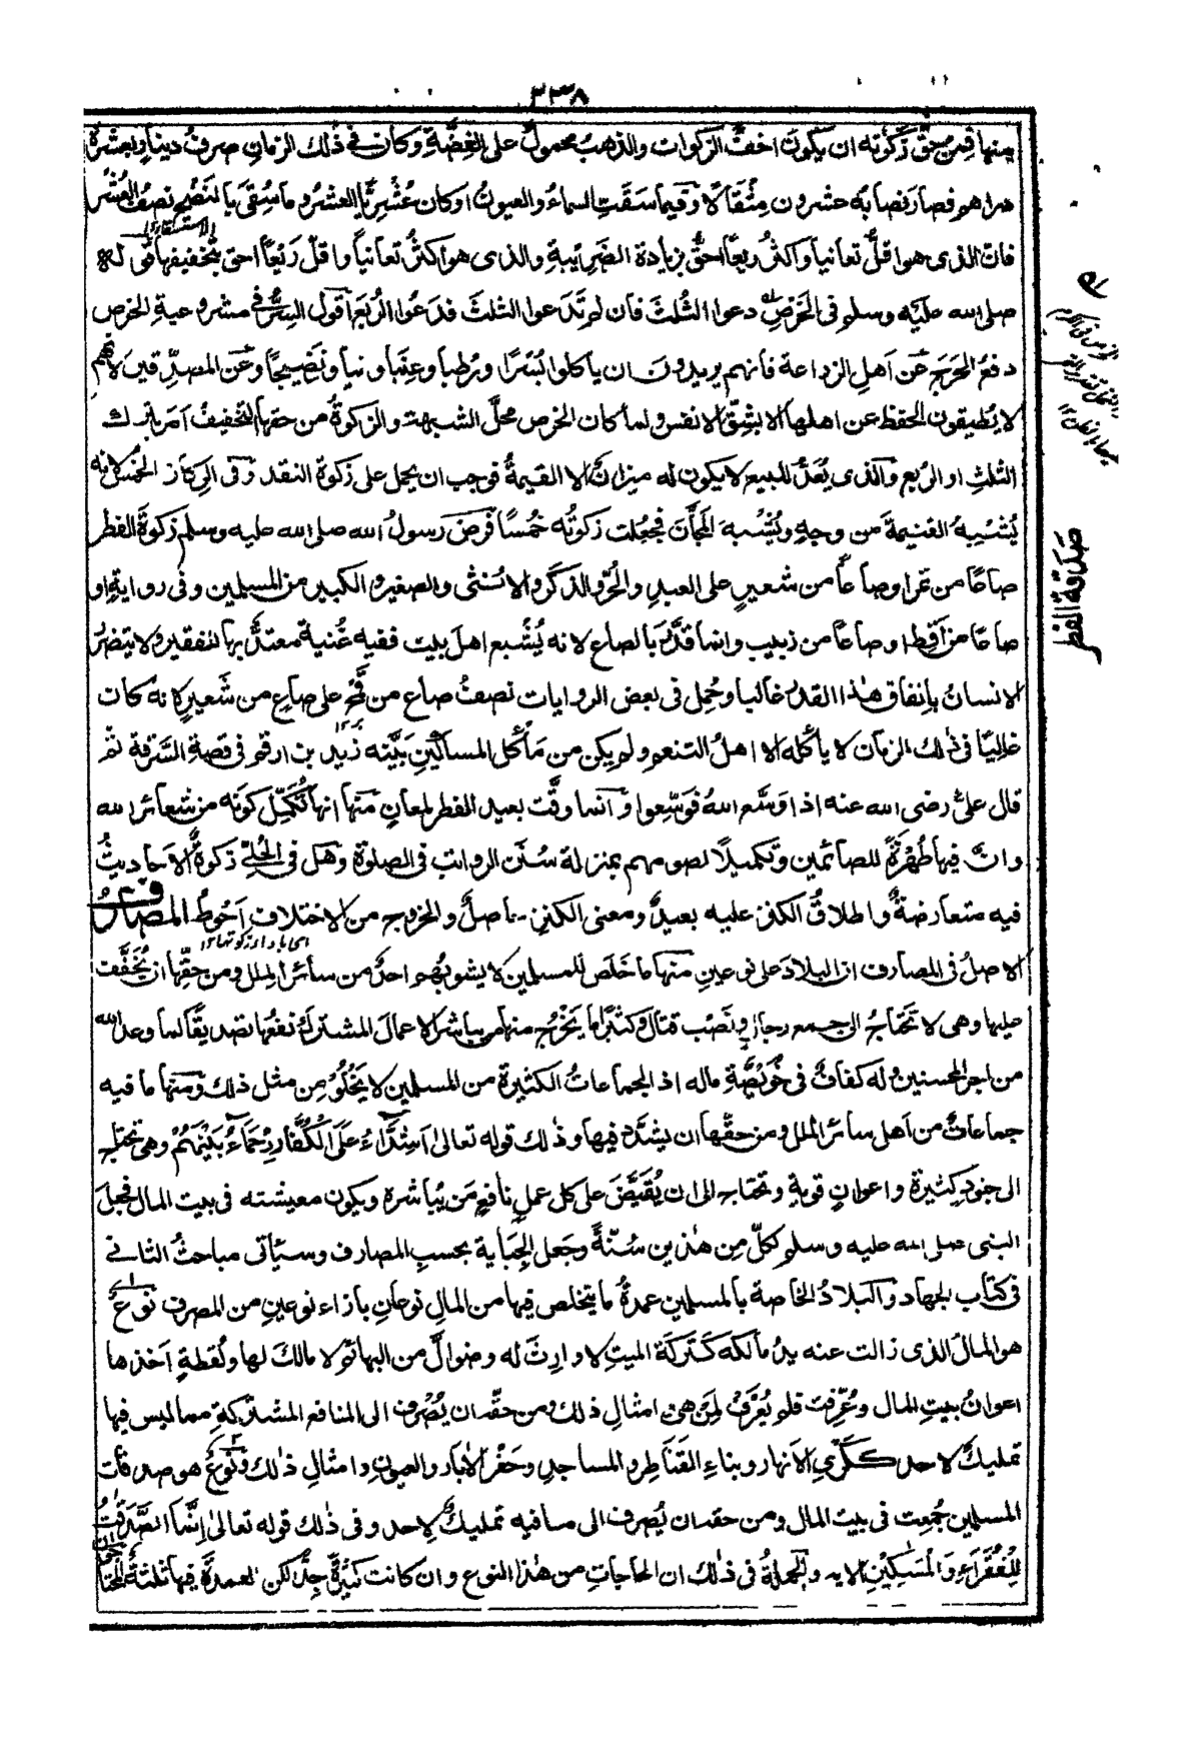 ٣٣٨
منها فمن حق زكوته ان يكون اخف الزكوات والذهب محمولٌ على الفِضَّةِ وكان في ذٰلك الزمان صرفُ دينارٍ بعشرة
دراهم فصار نصابه عشرون مِثقالًا وفيما سَقَتِ السماءُ والعيونُ او كان عَثْرِيًّا العشرُ وما سُقِىَ بالنضح نصفُ العُشر
فان الذى هو اقلُّ تعانيا واكثرُ ريعًا احقُّ بزيادة الضريبةِ والذى هو اكثرُ تعانيًا واقلُّ رَيْعًا احق بتخفيفها قوله
صلى الله عليه وسلم فى الخَرصِ دعوا الثُلثَ فان لم تَدَعوا الثلثَ فدَعُوا الرُبعَ اقول السِرُّ فى مشروعيةِ الخرص
دفعُ الحَرَجِ عن اهلِ الزراعة فانهم يريدون ان ياكلوا بُسْرًا ورُطبا وعِنَبا ونيا ونَضِيجًا وعن المصدِّقين لانهم
لا يُطيقون الحفظَ عن اهلها الا بشِقِّ الانفس ولما كان الخرص محلَّ الشبهة والزكوةُ من حقها التخفيفُ امر بترك
الثلثِ او الرُبع والذى يُعَدُّ للبيع لا يكون له ميزانٌ الا القيمةُ فوجب ان يحمل على زكوة النقد وفى الركاز الخُمُس لانه
يُشْبِهُ الغنيمةَ من وجهٍ ويُشْبهَ المجّانَ فجُعلت زكوتُه خُمُسًا فرَضَ رسولُ الله صلى الله عليه وسلم زكوةَ الفطر
صاعًا من تمر او صاعًا من شعيرٍ على العبدِ والحُرِّ والذكرِ والانثى والصغير والكبير من المسلمين وفى روايةٍ او
صاعًا من اَقِطٍ او صاعًا من زبيب وانما قُدِّرَ بالصاع لانه يُشبع اهلَ بيت ففيه غُنيةٌ معتدٌّ بها للفقير ولا يتضرُ
الانسانُ بانفاق هٰذا القدر غالبا وحُمِل فى بعض الروايات نصفُ صاع من قمح على صاعٍ من شعيرٍ لانه كان
غالبًا فى ذٰلك الزمان لا يأكله الا اهلُ التنعم ولم يكن من مأكل المساكين بَيَّنه زيد بن ارقم فى قصة السَّرِقة ثم
قال علىٌّ رضى الله عنه اذا وَسَّع اللهُ فوَسِّعوا وانما وقّت بعيد الفطر لمعانٍ منها انها تُكَمِّل كونَه من شعائر الله
وانّ فيها طُهْرَةً للصائمين وتكميلًا لصومهم بمنزلة سُنَن الرواتب فى الصلوة وهل فى الحُلِىِّ زكوةٌ الاحاديثُ
فيه متعارضةٌ واطلاقُ الكنز عليه بعيدٌ ومعنى الكنز حاصلٌ والخروج من الاختلاف اَحْوطُ المصارف
الاصلُ فى المصارف ان البلادَ على نوعينِ منها ما خَلَصَ للمسلمين لا يشوبهم احدٌ من سائر الملل ومن حقِّها ان يُخَفَّف
عليها وهى لا تحتاجُ الى جمع رجالٍ ونَصْبِ قتالٍ وكثيرًا ما يَخْرُج منها من يباشر الاعمال المشتركَ نفعُها تصديقًا لما وعد الله
من اجر المحسنين وله كفافٌ فى خُوَيْصَّةِ ماله اذ الجماعاتُ الكثيرة من المسلمين لا يَخْلُوْ من مثل ذلك ومنها ما فيه
جماعاتٌ من اهل سائر الملل ومن حقِّها ان يشدَّد فيها وذٰلك قوله تعالىٰ اَشِدَّاءُ عَلَى الْكُفَّارِ رُحَمَاءُ بَيْنَهُمْ وهى تحتاج
الى جنودٍ كثيرة واعوانٍ قوية وتحتاج الى ان يُقَيَّضَ على كل عملٍ نافعٍ مَن يُباشره ويكون معيشته فى بيت المال فجعل
النبى صلى الله عليه وسلم لكلٍّ من هٰذين سُنّةً وجَعل الجِبَايةَ بحسبِ المصارف وسيأتى مباحثُ الثانى
فى كتاب الجهاد والبلادُ الخاصة بالمسلمين عمدةُ ما يتخلص فيها من المالِ نوعانِ بازاء نوعينِ من المصرف نوعٌ
هو المالُ الذى زالت عنه يدُ مالكه كَتَرِكَة الميتِ لا وارِثَ له وضوالَّ من البهائم لا مالكَ لها ولُقَطةٍ اَخَذها
اعوانُ بيتِ المال وعُرِّفت فلم يُعْرَفْ لِمَن هى وامثالِ ذلك ومن حقه ان يُصْرف الى المنافع المشتركةِ مما ليس فيها
تمليكٌ لاحد ككَرْىِ الانهار وبناءِ القَناطِر والمساجدِ وحَفْرِ الآبار والعيونِ وامثالِ ذٰلك ونوعٌ هو صدقات
المسلمين جُمِعت فى بيت المال ومن حقه ان يُصرف الى ما فيه تمليكٌ لاحد وفى ذٰلك قوله تعالىٰ اِنَّمَا الصَّدَقٰتُ
لِلْفُقَرَاءِ وَالْمَسٰكِيْنِ الايه والجملةُ فى ذٰلك ان الحاجاتِ من هٰذا النوع وان كانت كثيرةً جدًّا لكن العمدةَ فيها ثلثةٌ المحتاجون
صدقة الفطر